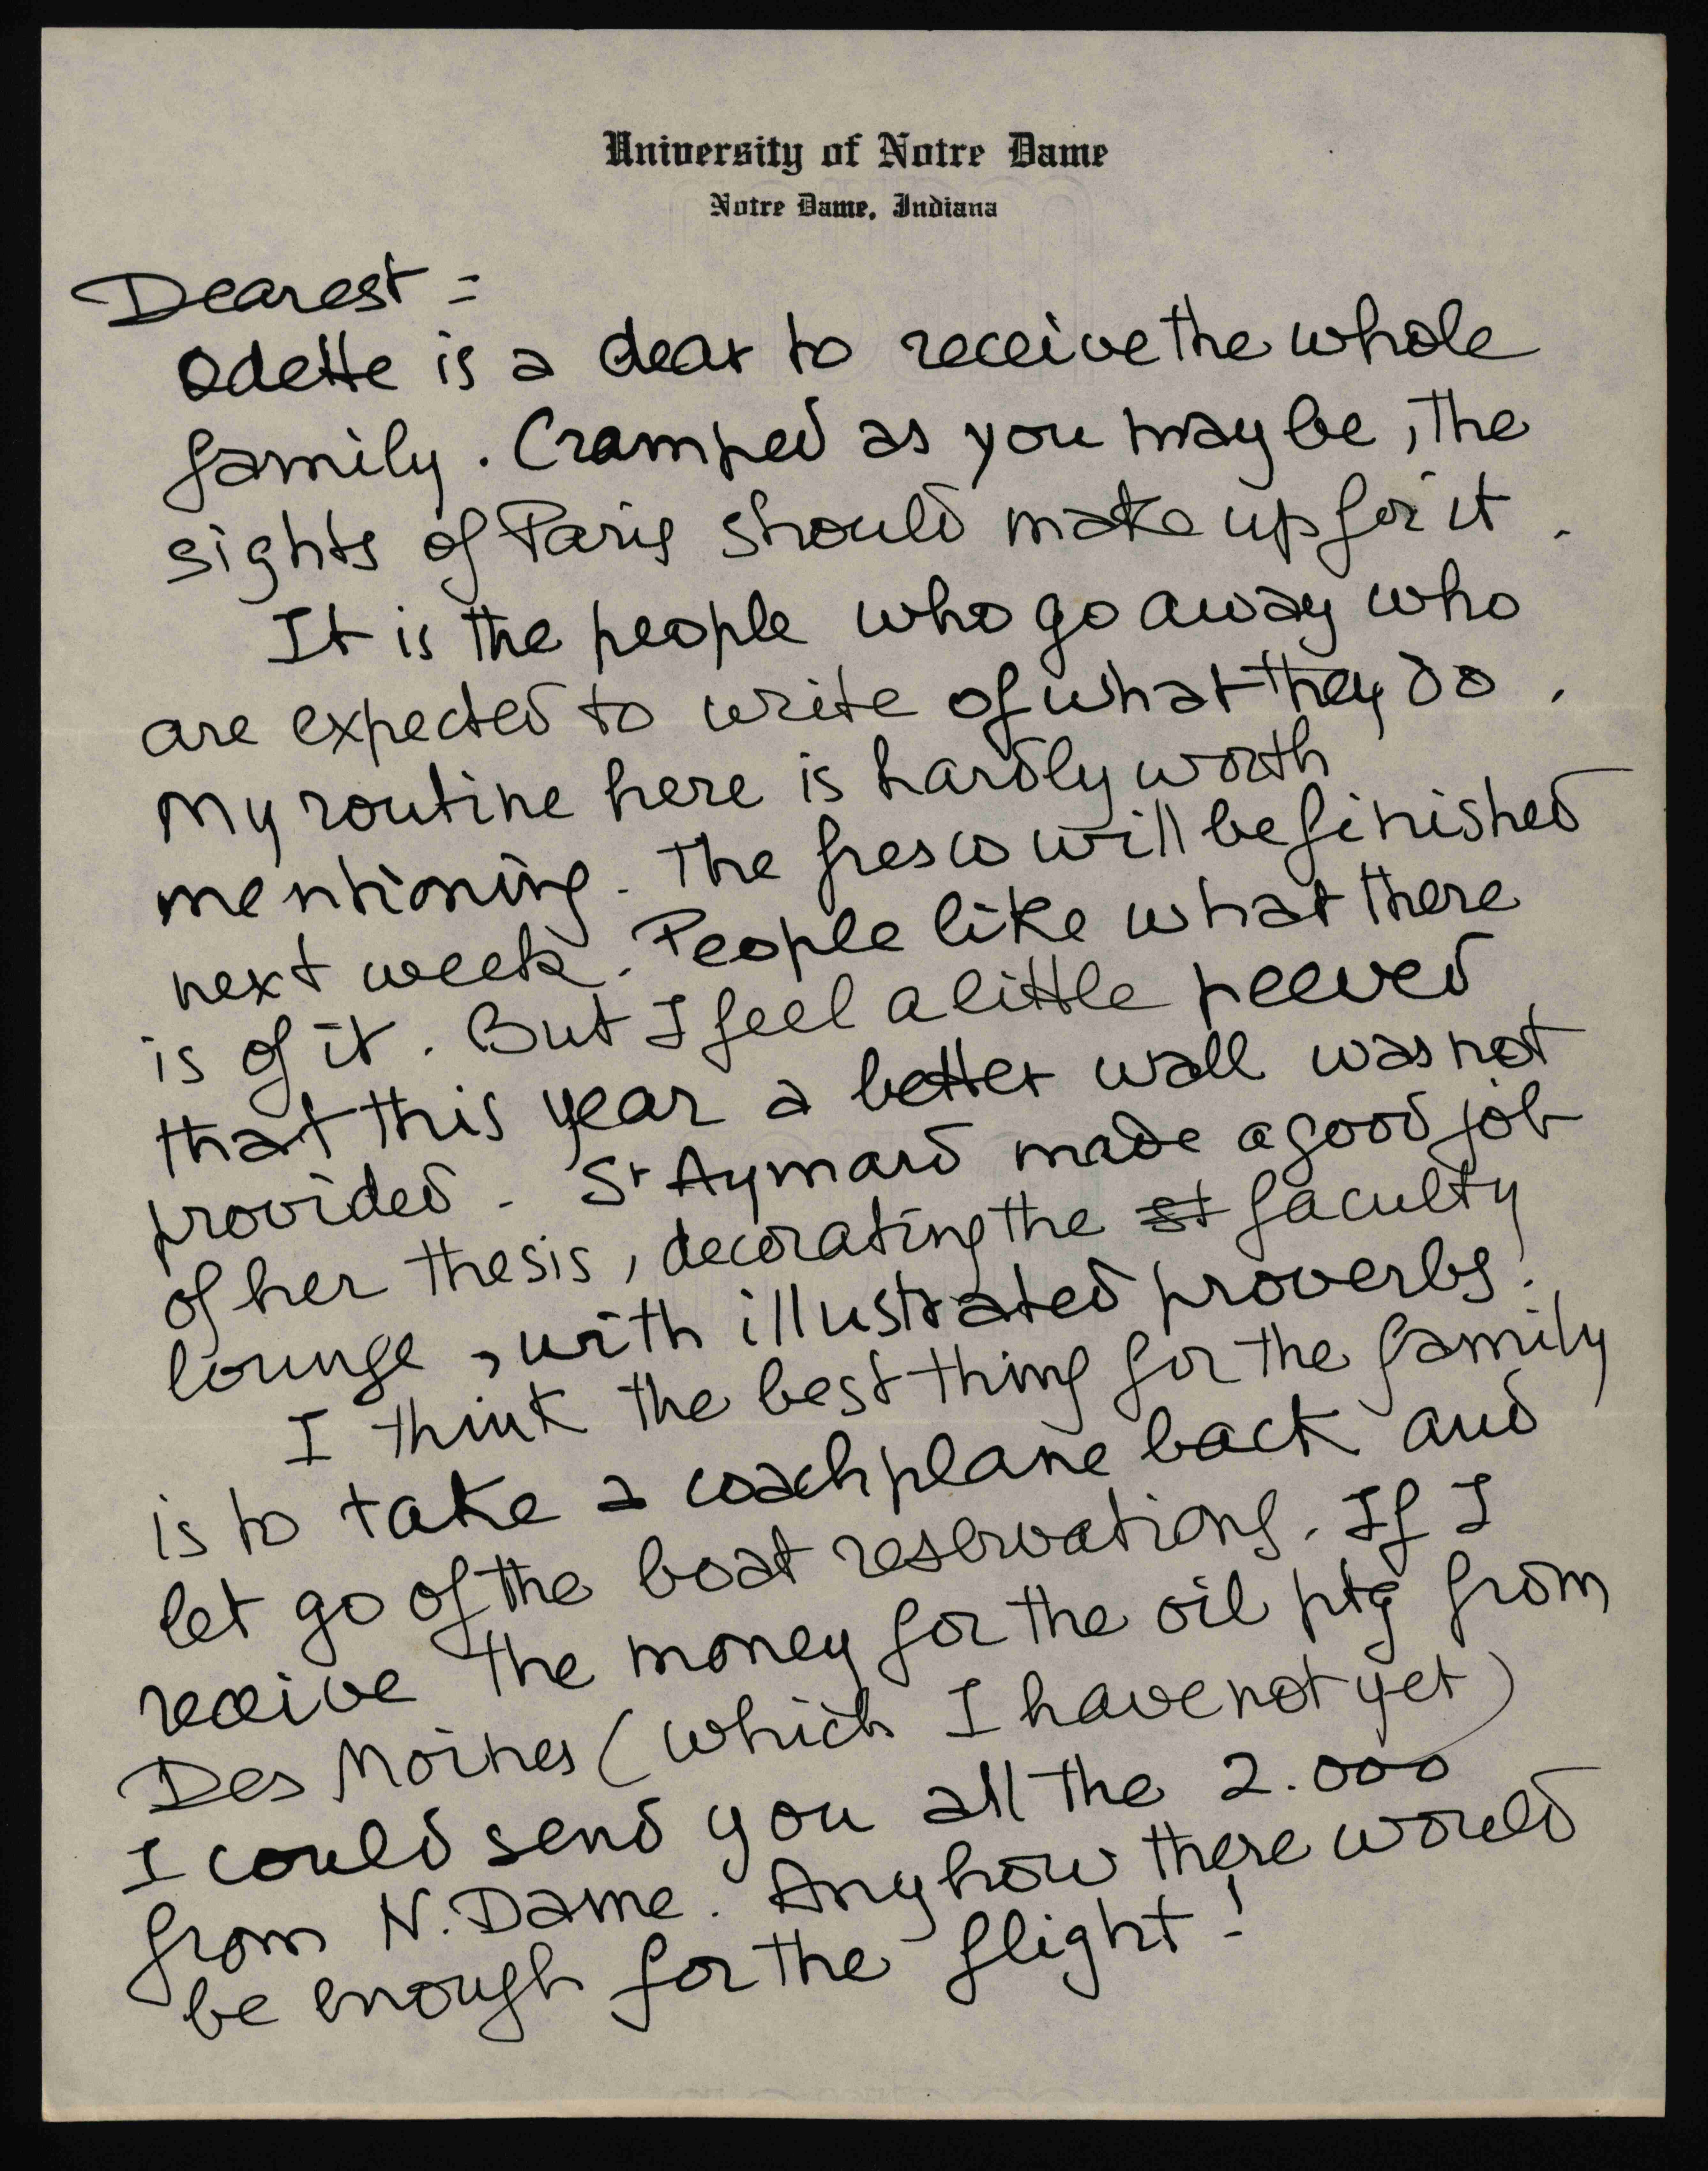 University of Notre Dame
Notre Dame, Indiana
Dearest =
Odette is a dear to receive the whole
family. Cramped as you may be, the
sights of Paris should make up for it.
It is the people who go away who
are expected to write of what they do.
My routine here is hardly worth
mentioning. The fresco will be finished
next week. People like what there
is of it. But I feel a little peeved
that this year a better wall was not
provided - Sr Aymard made a good job
of her thesis, decorating the st faculty
lounge, with illustrated proverbs.
I think the best thing for the family
is to take a coach plane back and
let go of the boat reservations. If I
receive the money for the oil ptg from
Des Moines (which I have not yet)
I could send you all the 2.000
from N. Dame. Anyhow there would
be enough for the flight!